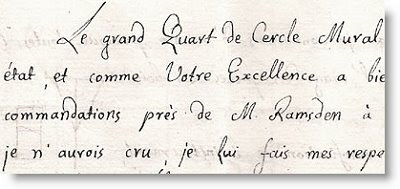 Le grand Quart de Cercle Mural
état, et comme Votre Excellence a bie
commandations près de M. Ramsden à
je n'aurois cru, je lui fais mes respe